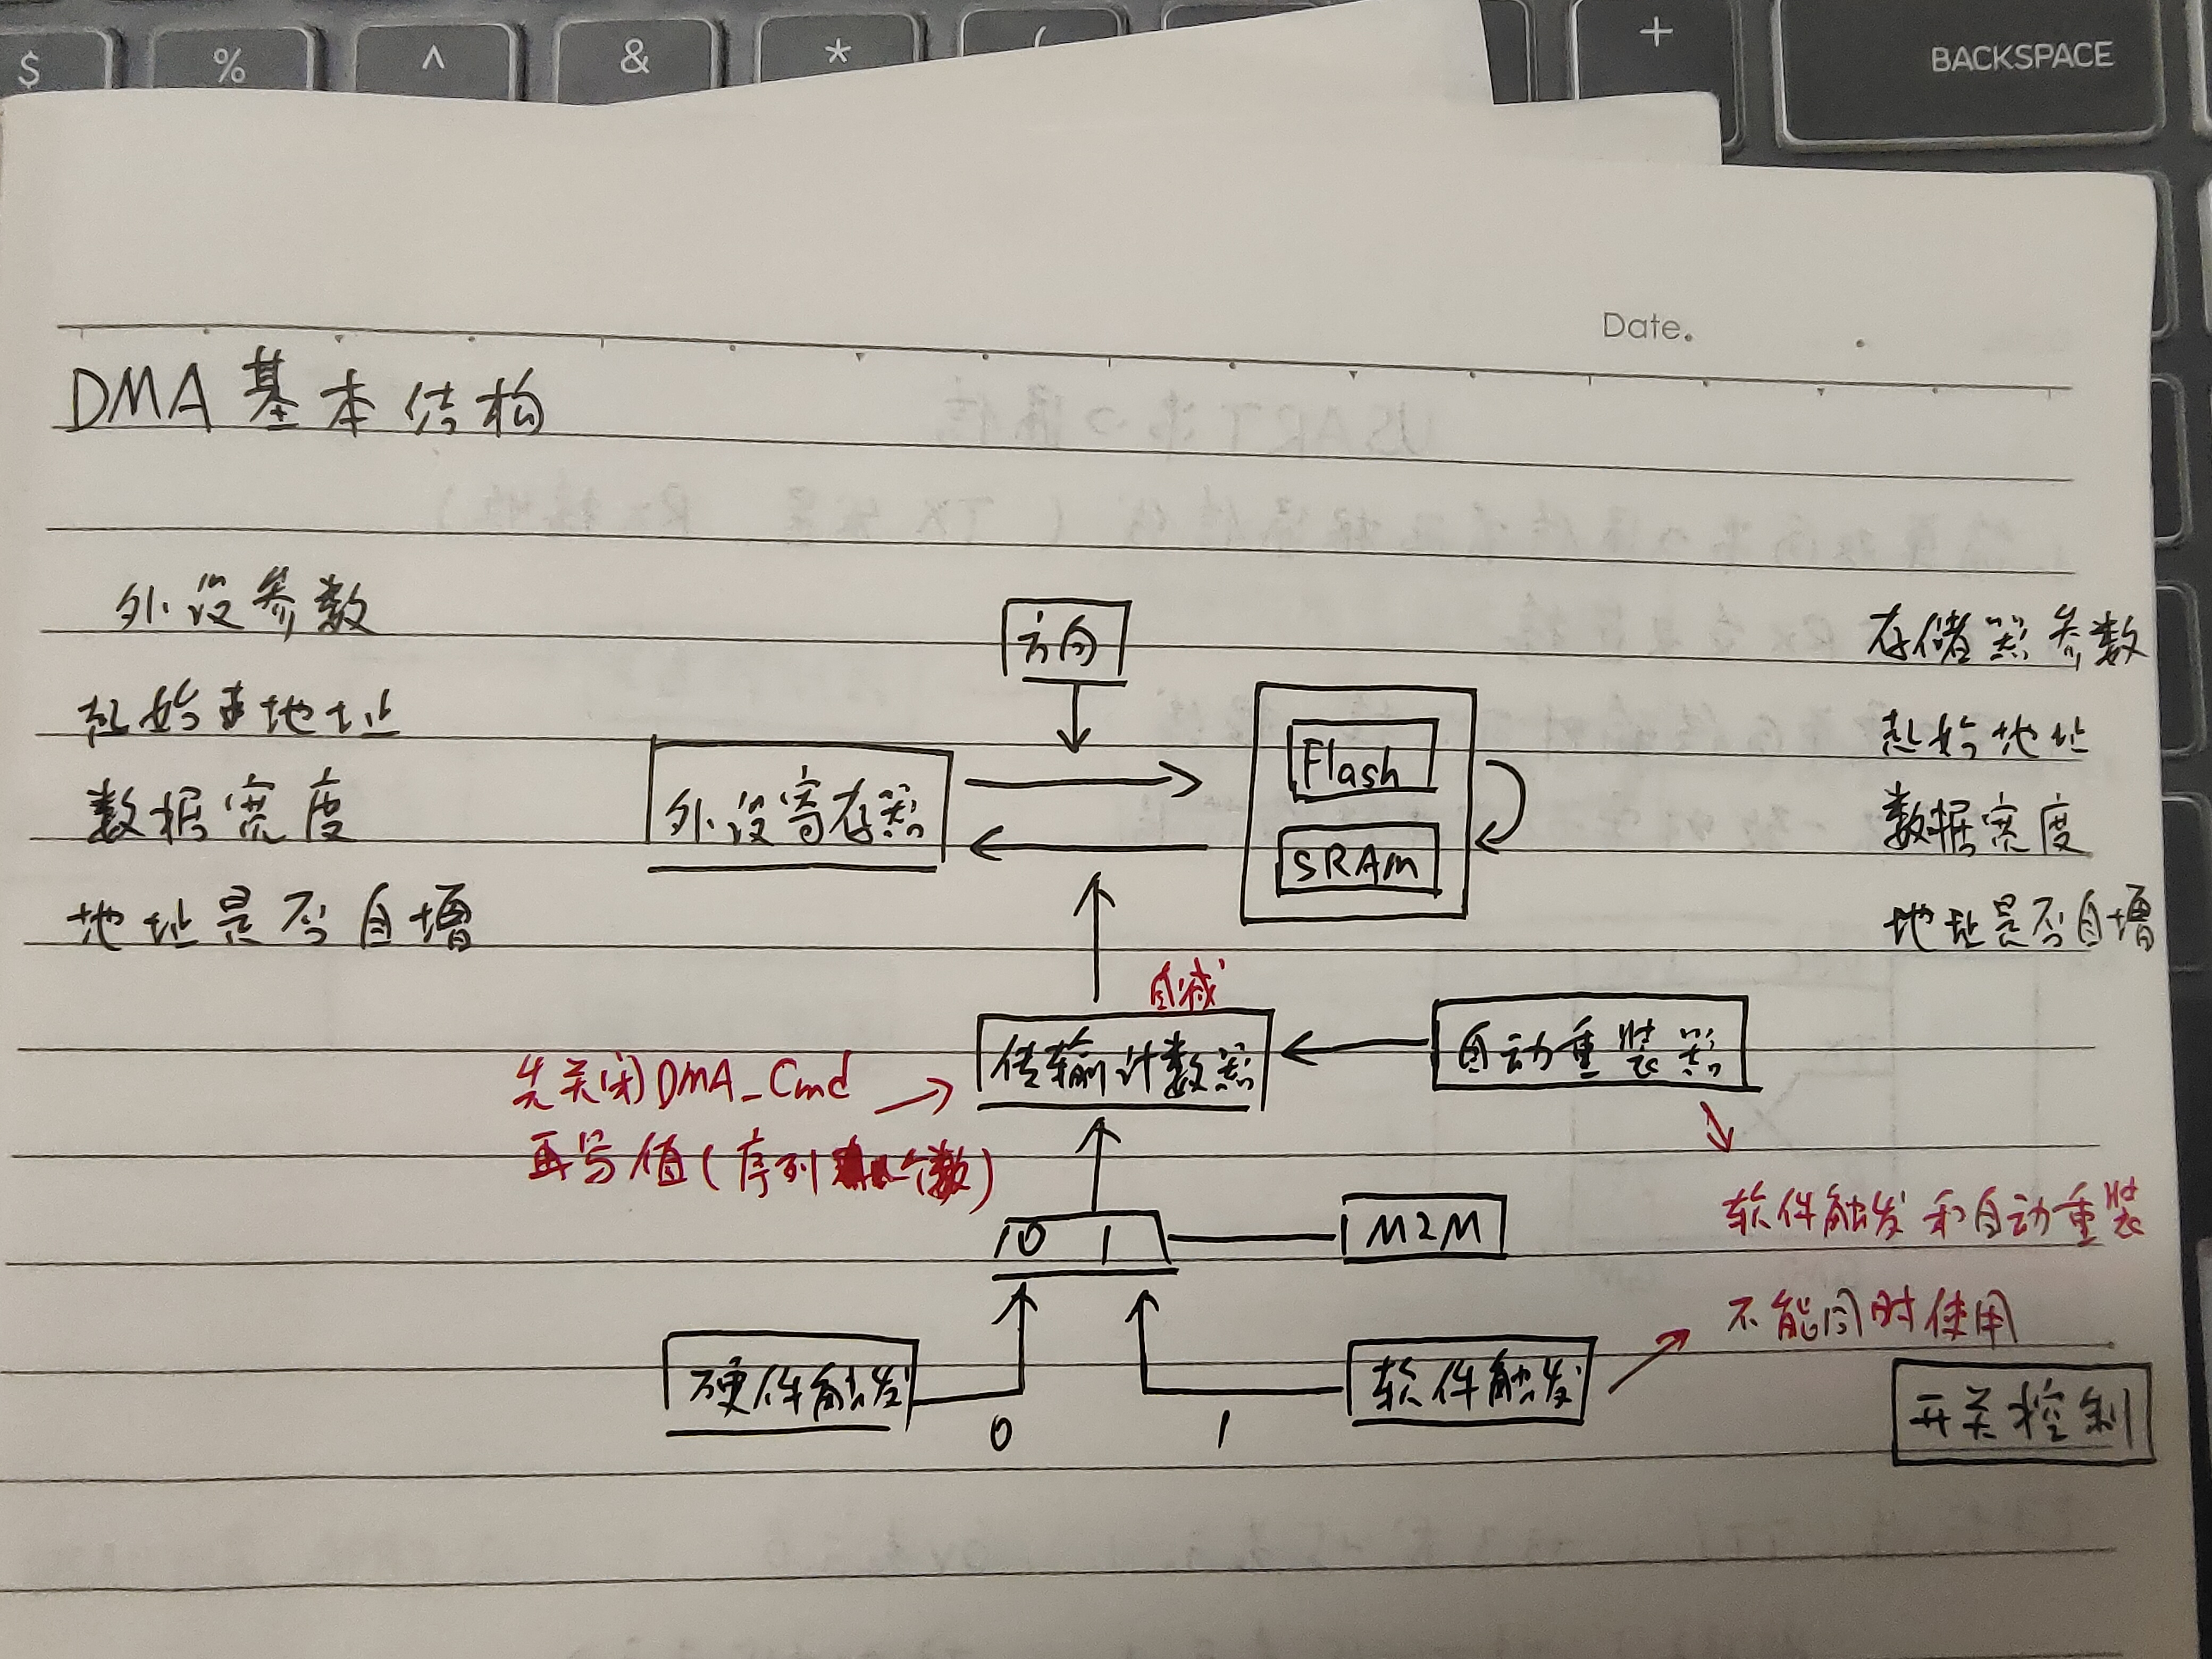 $ % ^ & * ( + BACKSPACE
Date.
DMA基本结构
外设参数
起始地址
数据宽度
地址是否自增
方向
外设寄存器
Flash
SRAM
存储器参数
起始地址
数据宽度
地址是否自增
自减
传输计数器
自动重装器
先关闭DMA_Cmd
再写值(序列个数)
软件触发和自动重装
不能同时使用
0 1
M2M
硬件触发
0
1
软件触发
开关控制